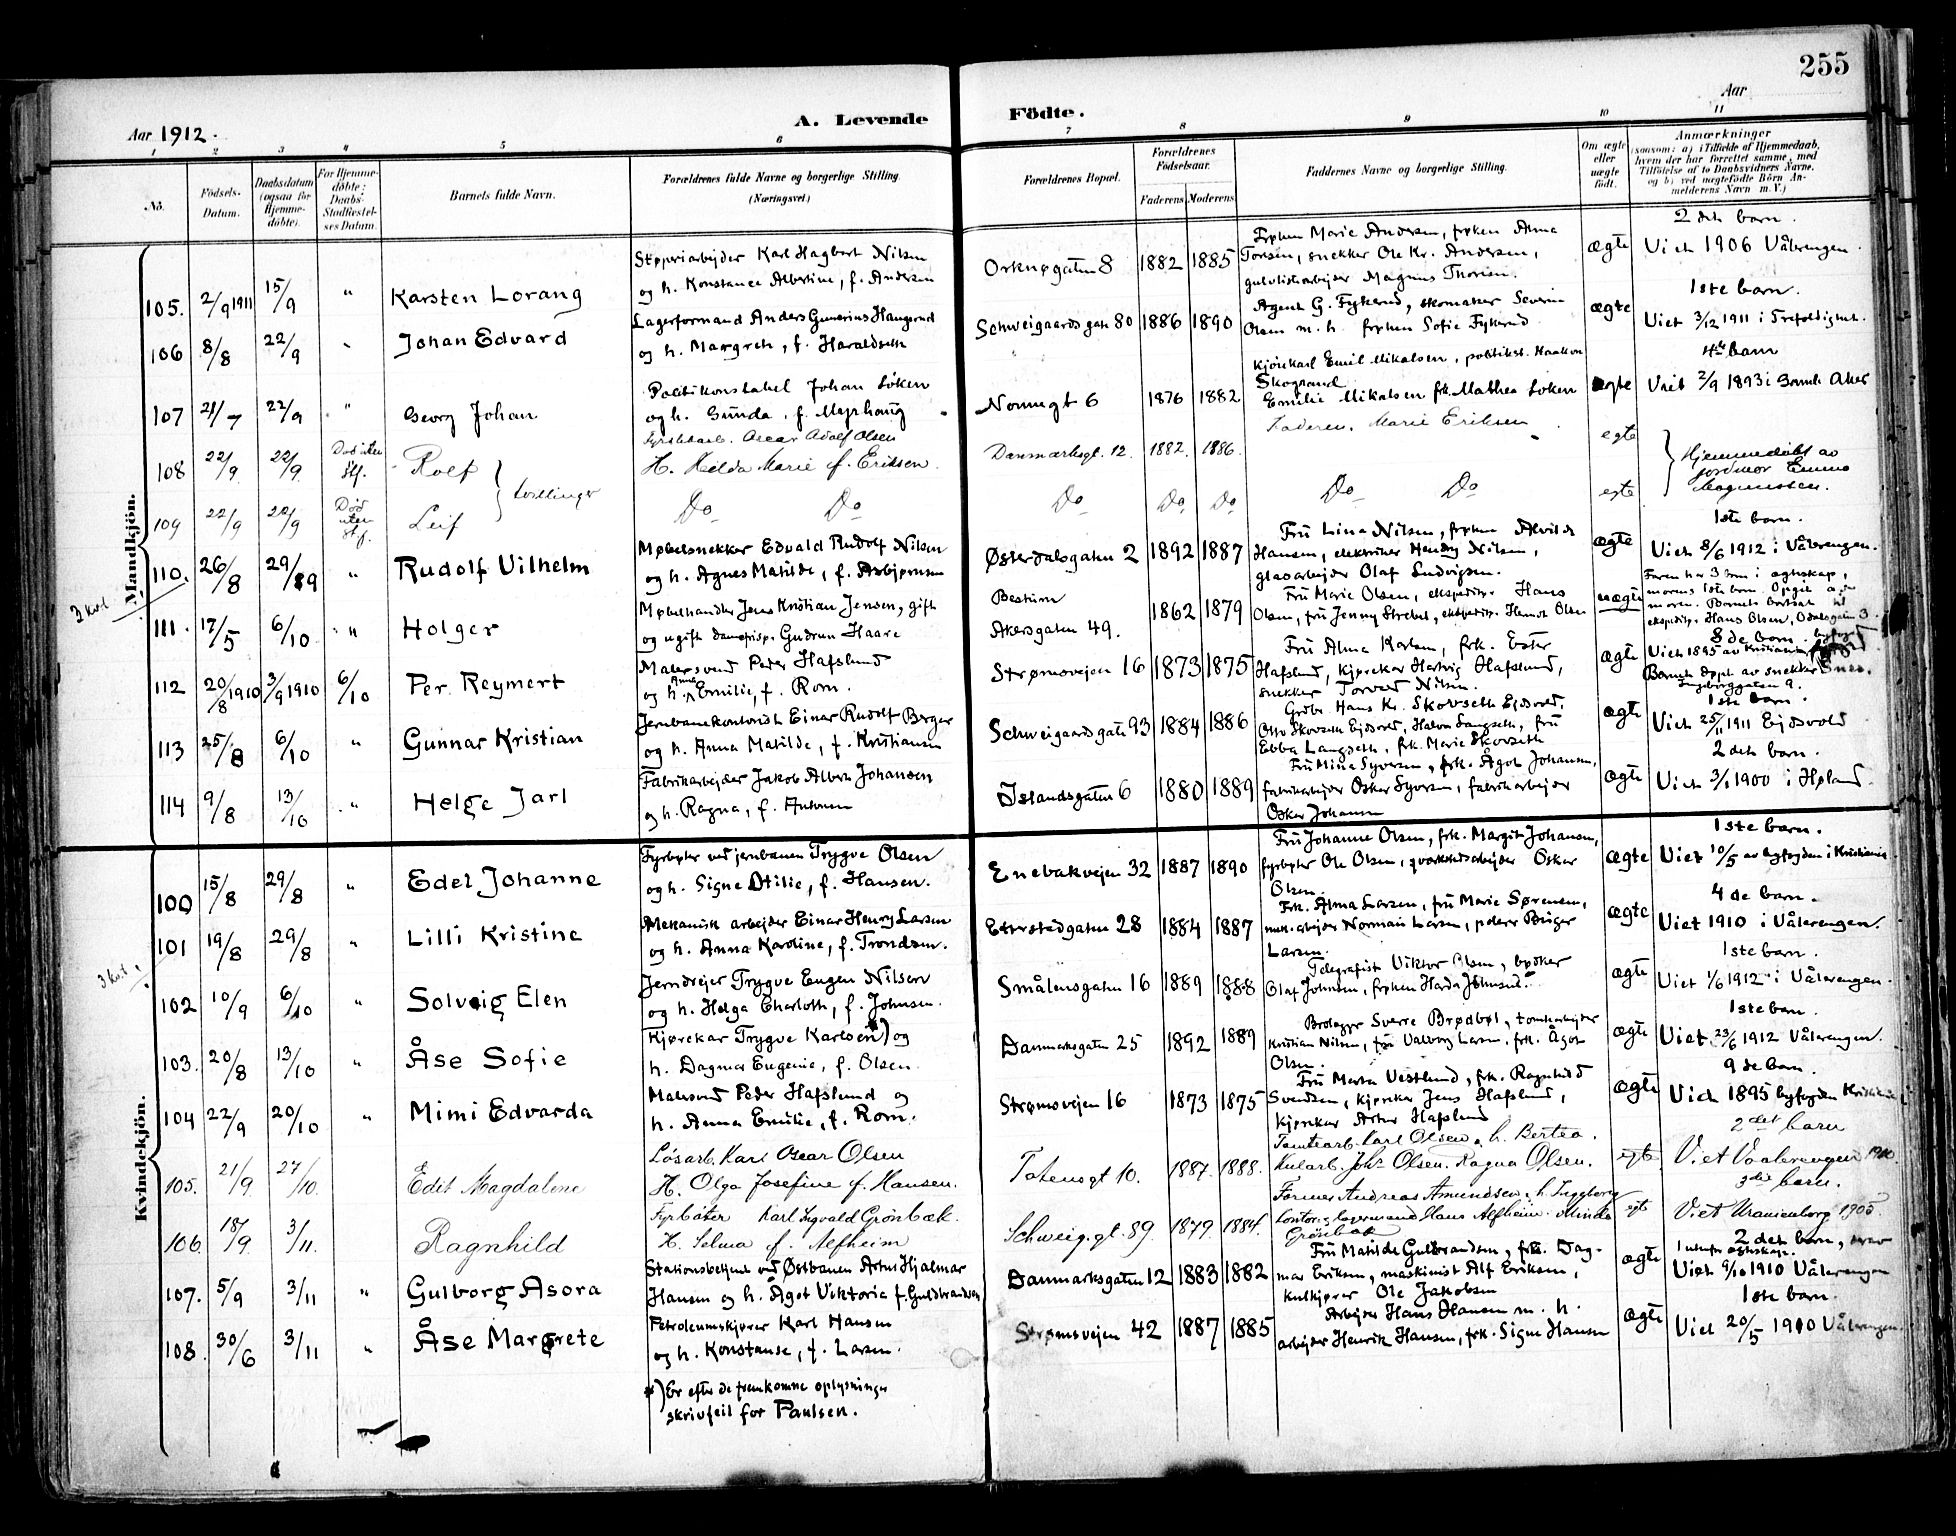 255
Aar 1912.
A. Levende Födte.
Aar
1 2 3 4 5 6 7 8 9 10 11
No.
Födsels-Datum.
Daabsdatum (ogsaa for Hjemmedöbte).
For Hjemmedöbte: Daabs-Stadfæstelses Datum.
Barnets fulde Navn.
Forældrenes fulde Navne og borgerlige Stilling. (Næringsvei)
Forældrenes Bopæl.
Forældrenes Födselsaar.
Faderens Moderens
Faddernes Navne og borgerlige Stilling.
Om ægte eller uægte födt.
Anmærkninger
(saasom: a) i Tilfælde af Hjemmedaab,
hvem der har forrettet samme, med
Tilföielse af to Daabsvidners Navne,
og b) ved uægtefödte Börn An-
melderens Navn m. V.)
Mandkjön.
105. 2/9 1911 15/9 " Karsten Lorang
Støperiarbejder Karl Hagbart Nilsen
og h. Konstance Albertine, f. Andersen
Orknøgaten 8 1882 1885
Frøken Marie Andersen, frøken Alma
Torsen, snekker Ole Kr. Andersen,
gulvlistarbejder Magnus Thorsen.
ægte
2 det barn.
Viet 1906 Vålerengen.
106 8/8 22/9 " Johan Edvard
Lagerformand Anders Gunerius Haugerud
og h. Margrete, f. Haraldseth
Schweigaardsgate 80 1886 1890
Agent G. Fykerud, skomaker Severin
Olsen m. h. frøken Sofie Fykerud
ægte
1ste barn.
Viet 3/12 1911 i Trefoldighet.
107 21/7 22/9 " Georg Johan
Politikonstabel Johan Løken
og h. Gunda, f. Mephaug
Normgt 6 1876 1882
Kjørekarl Emil Mikalsen, politikst. Haakon
Skogrand
Emilie Mikalsen frk. Mathea Løken
ægte
4de barn
Viet 2/9 1893 i Aker
108 22/9 22/9 Død uten stf. Rolf
109 22/9 22/9 Død uten stf. Leif
tvillinger
Oscar Adolf Olsen
H. Hilda Marie f. Eriksen.
Do Do
Danmarksgt. 12. 1882. 1886.
Do Do Do
Faderen. Marie Eriksen
Do Do
egte
egte
Hjemmedøbt av
jordmor Emma
Magnussen.
110. 26/8 29/9 " Rudolf Vilhelm
Møbelsnekker Edvald Rudolf Nilsen
og h. Agnes Matilde, f. Asbjørnsen
Østerdalsgaten 2 1892 1887
Fru Lina Nilsen, frøken Alvilde
Hansen, elektriker Henry Nilsen,
glasarbejder Olaf Ludvigsen.
ægte
1ste barn.
Viet 8/6 1912 i Vålerengen.
3 kvt
111. 17/5 6/10 " Holger
Møbelhandler Jens Kristian Jensen, gift
og ugift damefrisp. Gudrun Haare
Bestum
Akersgaten 49.
1862 1879
Fru Marie Olsen, ekspeditr. Hans
Olsen, fru Jenny Strebel, ekspeditr. Olsen
uægte
Faren har 3 brn i ægteskap,
morens 1ste barn. Opgit a
moren. Barnets bortsat til
ekspeditr. Hans Olsen, Odalsgaten 3
112 20/8 1910 3/9 1910 6/10 Per Reymert
Malersvend Peder Hafslund
og h. Anna Emilie, f. Rom.
Strømsvejen 16 1873 1875
Fru Alma Karlsen, frk. Ester
Hafslund, kjøreker Hartvig Hafslund,
snekker Torvald Nilsen.
ægte
8 de barn.
Viet 1895 av Kristiania byfoged
Barnet oppt. av snekker
Ingeborggaten 9.
113 25/8 6/10 " Gunnar Kristian
Jernbanekontorist Einar Rudolf Berger
og h. Anna Matilde, f. Kristiansen
Schweigaardsgate 93 1884 1886
Grdbr. Hans Kr. Skovseth Ejdsvold,
Otto Skovseth Ejdsvold, Halvor Langseth, fru
Ebba Langseth, frk. Marie Skovseth
ægte
1ste barn.
Viet 25/11 1911 Ejdsvold
114 9/8 13/10 " Helge Jarl
Fabrikarbejder Jakob Albert Johansen
og h. Ragna, f. Antonsen
Islandsgaten 6 1880 1889
Fru Mina Syversen, frk. Ågot Johansen,
fabrikarbejder Osker Syversen, fabrikarbejder
Osker Johansen
ægte
2 det barn.
Viet 3/1 1900 i Høland.
Kvindekjön.
100 15/8 29/8 " Edel Johanne
Fyrbøter ved jernbanen Trygve Olsen
og h. Signe Otilie, f. Hansen.
Enebakvejen 32 1887 1890
Fru Johanne Olsen, frk. Margit Johansen,
fyrbøter Ole Olsen, Osker
Olsen.
ægte
1ste barn.
Viet 10/5 av byfogden i Kristiania
101 19/8 29/8 " Lilli Kristine
Mekanisk arbejder Einar Henry Larsen
og h. Anna Karoline, f. Trondsen.
Etterstadgaten 28 1884 1887
Frk. Alma Larsen, fru Marie Sørensen,
mek. arbejder Norman Larsen, polerer Birger
Larsen.
ægte
4 de barn.
Viet 1910 i Vålerengen.
3 kvt.
102 10/9 6/10 " Solveig Elen
Jerndrejer Trygve Eugen Nilsen
og h. Helga Charlotte, f. Johnsen.
Smålensgaten 16 1889 1888
Telegrafist Viktor Olsen, bøsker
Olaf Johnsen, frøken Harda Johnsen.
ægte
1ste barn.
Viet 1/6 1912 i Vålerengen.
103. 20/8 13/10 " Åse Sofie
Kjørekar Trygve Karlsen *) og
h. Dagmar Eugenie, f. Olsen
Danmarksgaten 25 1892 1889
Brolegger Sverre Brødbøl, tomtearbejder
Kristian Nilsen, fru Valborg Larsen, frk. Ågot
Olsen.
ægte
1ste barn.
Viet 23/6 1912 Vålerengen.
104 22/9 20/10 " Mimi Edvarda
Malersvend Peder Hafslund og
h. Anna Emilie, f. Rom.
Strømsvejen 16 1873 1875
Fru Marta Vestlund, frk. Ragnhild
Svendsen, kjøreker Jens Hafslund,
kjøreker Artur Hafslund
ægte
9 de barn.
Viet 1895 byfogden Kristiania
105. 21/9. 27/10. Edit Magdalene
Løsarb. Karl Oscar Olsen
H. Olga Josefine f. Hansen.
Totensgt 10. 1887. 1888.
Tomtearb. Karl Olsen o. h. Bertea.
Kularb. Johs Olsen. Ragna Olsen.
egte
2det barn
Viet Vaalerengen 1910.
106. 18/9. 3/11. Ragnhild
Fyrbøter Karl Ingvald Grönbæk.
H. Selma f. Alfheim
Schweig.gt. 89. 1879. 1884.
Former Andreas Amundsen o. h. Ingeborg
kontor- og lagermand Hans Alfheim. Minda
Grönbæk
egte
3die barn.
Viet Uranienborg 1905.
107. 5/9 3/11 " Gulborg Asora
Stationsbetjent ved Østbanen Artur Hjalmar
Hansen og h. Ågot Viktoria f. Guldbrandsen
Danmarksgaten 12 1883 1882
Fru Matilde Gulbrandsen, frk. Dag-
mar Eriksen, maskinist Alf Eriksen,
kulkjører Ole Jakobsen
ægte
2 det barn, morens
1 utenfor ægteskap.
Viet 9/10 1910 Vålerengen
108. 30/6 3/11 " Åse Margrete
Petroleumskjører Karl Hansen
og h. Konstanse, f. Larsen.
Strømsvejen 42 1887 1885
Arbejder Hans Hansen m. h.
arbejder Henrik Hansen, frk. Signe Hansen
ægte
1ste barn.
Viet 20/5 1910 Vålerengen.
*) Er efter de fremkomne oplysninger
skrivfeil for Paulsen.